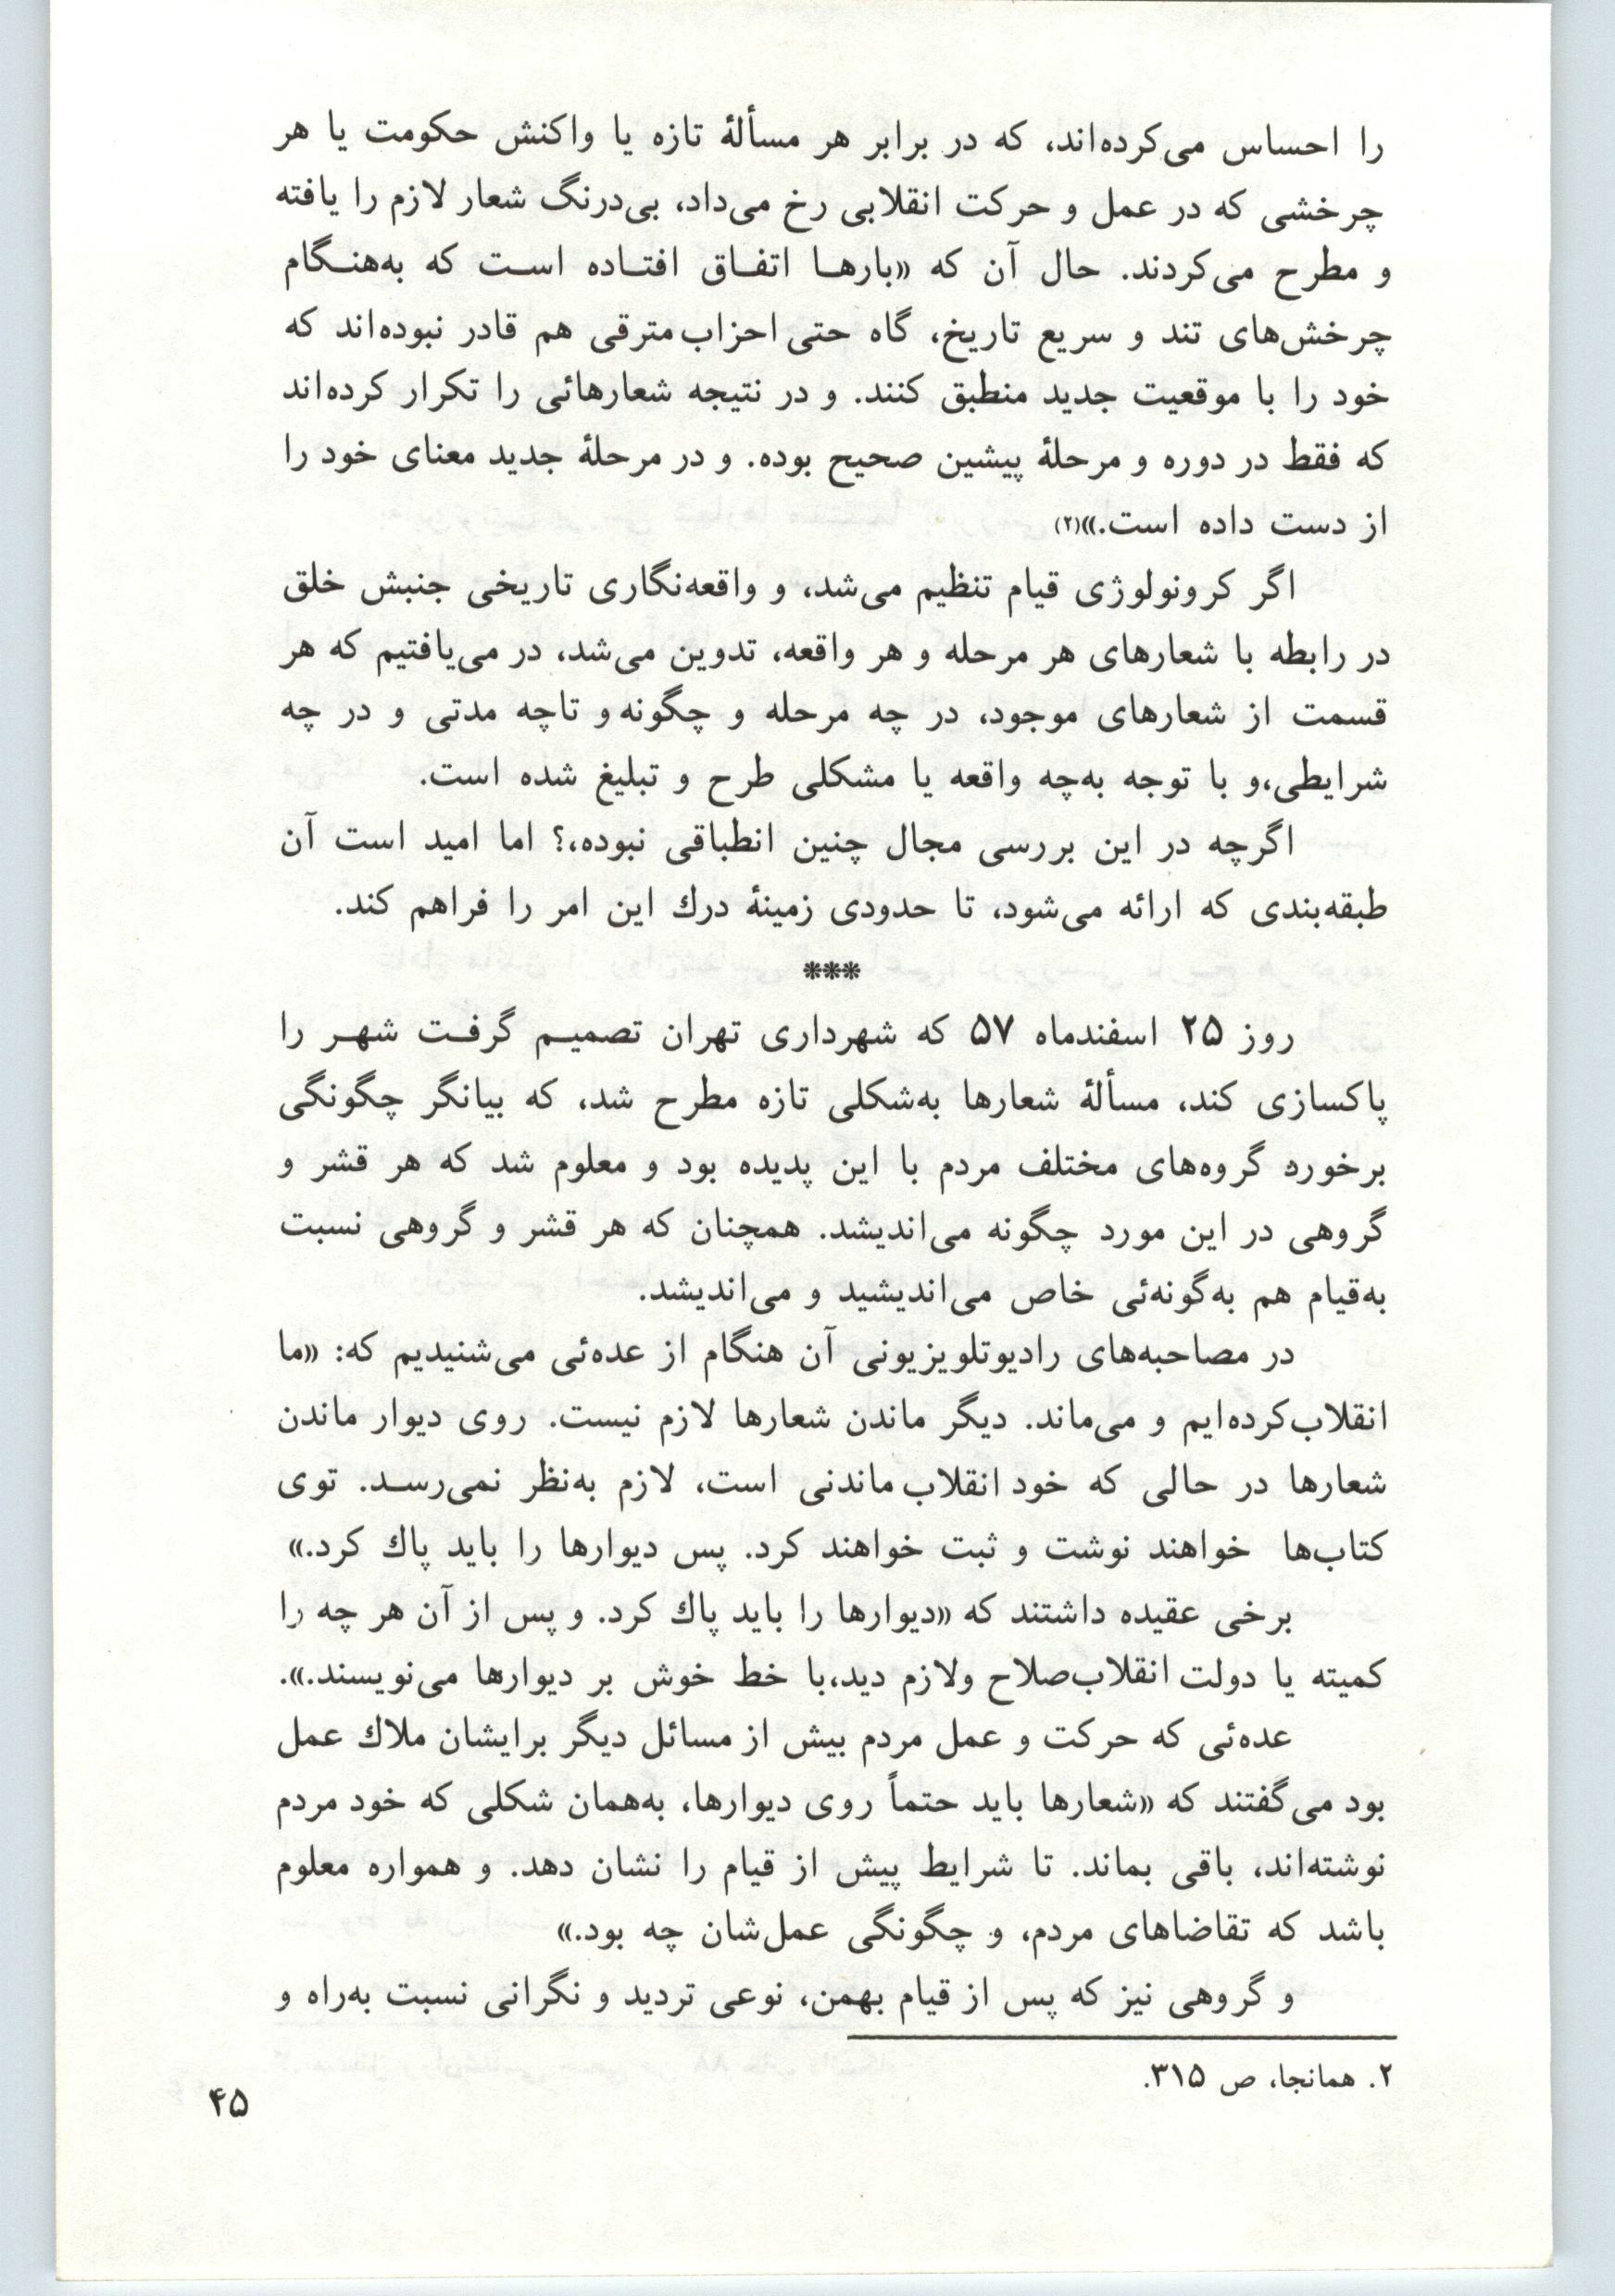 را احساس می‌کرده‌اند، که در برابر هر مسألهٔ تازه یا واکنش حکومت یا هر
چرخشی که در عمل و حرکت انقلابی رخ می‌داد، بی‌درنگ شعار لازم را یافته
و مطرح می‌کردند. حال آن که «بارها اتفاق افتاده است که به‌هنگام
چرخش‌های تند و سریع تاریخ، گاه حتی احزاب مترقی هم قادر نبوده‌اند که
خود را با موقعیت جدید منطبق کنند. و در نتیجه شعارهائی را تکرار کرده‌اند
که فقط در دوره و مرحلهٔ پیشین صحیح بوده. و در مرحلهٔ جدید معنای خود را
از دست داده است.»(۲)
اگر کرونولوژی قیام تنظیم می‌شد، و واقعه‌نگاری تاریخی جنبش خلق
در رابطه با شعارهای هر مرحله و هر واقعه، تدوین می‌شد، در می‌یافتیم که هر
قسمت از شعارهای موجود، در چه مرحله و چگونه و تاچه مدتی و در چه
شرایطی،و با توجه به‌چه واقعه یا مشکلی طرح و تبلیغ شده است.
اگرچه در این بررسی مجال چنین انطباقی نبوده،؟ اما امید است آن
طبقه‌بندی که ارائه می‌شود، تا حدودی زمینهٔ درك این امر را فراهم کند.
***
روز ۲۵ اسفندماه ۵۷ که شهرداری تهران تصمیم گرفت شهر را
پاکسازی کند، مسألهٔ شعارها به‌شکلی تازه مطرح شد، که بیانگر چگونگی
برخورد گروه‌های مختلف مردم با این پدیده بود و معلوم شد که هر قشر و
گروهی در این مورد چگونه می‌اندیشد. همچنان که هر قشر و گروهی نسبت
به‌قیام هم به‌گونه‌ئی خاص می‌اندیشید و می‌اندیشد.
در مصاحبه‌های رادیوتلویزیونی آن هنگام از عده‌ئی می‌شنیدیم که: «ما
انقلاب‌کرده‌ایم و می‌ماند. دیگر ماندن شعارها لازم نیست. روی دیوار ماندن
شعارها در حالی که خود انقلاب ماندنی است، لازم به‌نظر نمی‌رسد. توی
کتاب‌ها خواهند نوشت و ثبت خواهند کرد. پس دیوارها را باید پاك کرد.»
برخی عقیده داشتند که «دیوارها را باید پاك کرد. و پس از آن هر چه را
کمیته یا دولت انقلاب‌صلاح ولازم دید،با خط خوش بر دیوارها می‌نویسند.».
عده‌ئی که حرکت و عمل مردم بیش از مسائل دیگر برایشان ملاك عمل
بود می‌گفتند که «شعارها باید حتماً روی دیوارها، به‌همان شکلی که خود مردم
نوشته‌اند، باقی بماند. تا شرایط پیش از قیام را نشان دهد. و همواره معلوم
باشد که تقاضاهای مردم، و چگونگی عمل‌شان چه بود.»
و گروهی نیز که پس از قیام بهمن، نوعی تردید و نگرانی نسبت به‌راه و
۲. همانجا، ص ۳۱۵.
۴۵